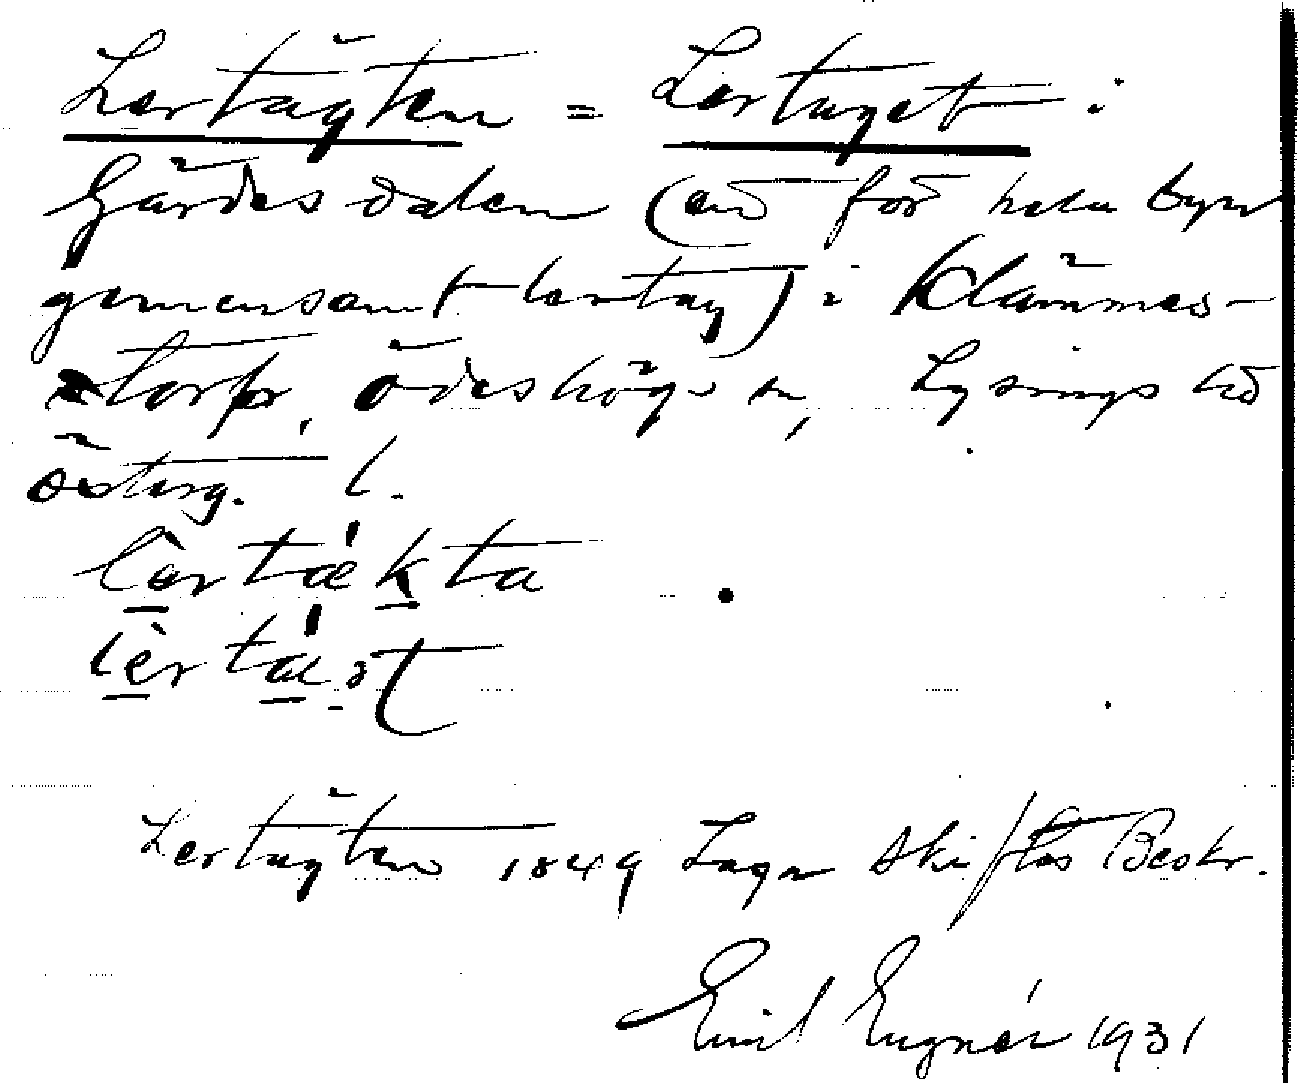 Lertägten = Lertaget i
Gärdesdalen (ett för hela byn
gemensamt lertag) i Klämmes-
torp, Ödeshögs sn, Lysings hd
Österg. l.
lertækta
Lertägten 1849 Laga skiftes Beskr.
Emil Engnér 1931